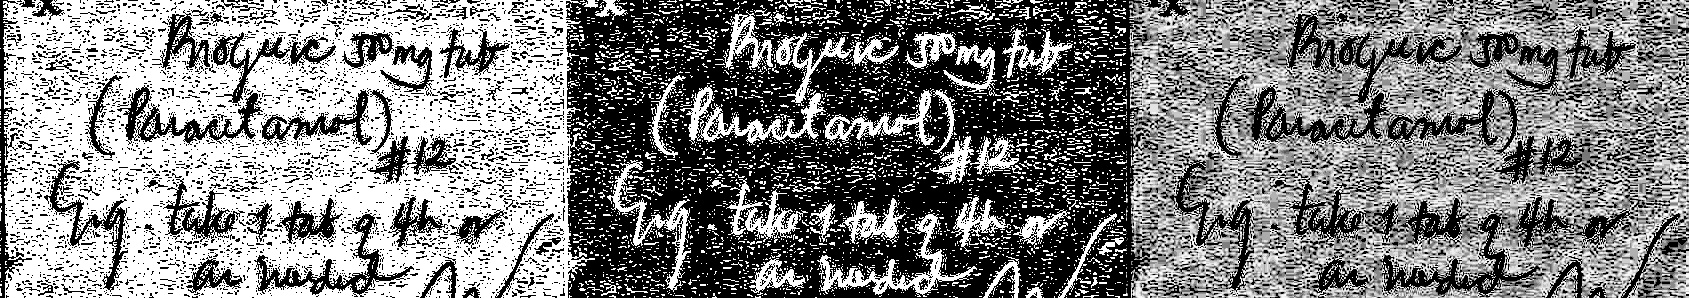 Biogesic 500mg tab
(Paracetamol)
#12
Sig: take 1 tab q 4h or
as needed
Biogesic 500mg tab
(Paracetamol)
#12
Sig: take 1 tab q 4h or
as needed
Biogesic 500mg tab
(Paracetamol)
#12
Sig: take 1 tab q 4h or
as needed